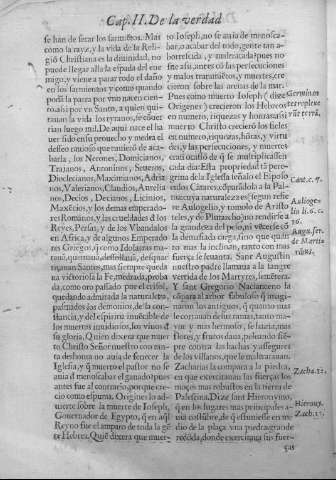 Cap. II. De la verdad
se han de secar los sarmientos. Mas
como la rayz, y la vida de la Reli-
gió Christiana es la diuinidad, no
puede llegar alla la espada del ene
migo, y assi para todo el daño
en los sarmientos y como quando
podá la parra por vno nacen cien-
to, y por vn Santo, a quien quita
ron la vida los tyranos, se cõuer-
tian luego mil. De aqui nace el ha
uer sido en su prouecho y medra el
desseo curioso que tuuieró de aca-
barla, los Nerones, Domicianos,
Trajanos, Antoninos, Seueros,
Dioclecianos, Maximianos, Adria
nos, Valerianos, Claudios, Aurelia
nos, Decios, Licinios,
Maxécios, y los demas emperado-
res Romanos, y las crueldades d los
Reyes, Persas, y de los Vbandalos
en Africa, y de algunos Emperado
res Griegos, q̃ como
Santos, mas siempre queda
ua victoriosa la Fe, medrada, proba
da, como oro passado por el crisol,
quedando admirada la naturaleza,
pasmados los demonios, de la con-
stancia, y del espiritu inuisible de
los muertos inuidiosos, los viuos d
su gloria. Quien dixera que muer
to Christo Señor nuestro con mue
rte deshonrra no auia de fenecer la
Iglesia, y q̃ muerto el pastor no se
auia d menoscabar el ganado; pues
antes fue al contrario, porque cre-
cio como espuma. Origines lo ad
uierte sobre la muerte de Ioseph,
Gouernador de Egypto, q̃ en aql
Reyno fue el amparo de toda la gẽ
te Hebrea. Quiẽ dixera que muer-
to Ioseph, no se auia de menosca-
bar, o acabar del todo, gente tan a-
borrescida, y maltratada; pues no
fue assi, antes cõ las persecuciones
y malos tratamiẽtos, y muertes, cre
cieron sobre las arenas de la mar.
Pues como muerto Ioseph (dize
Origenes) crecieron los Hebreos
en numero, riquezas y honrra: assi
muerto Christo crecieró los fieles
en numero, riquezas, hõrras, y virtu
des, y las persecuciones, y muertes
eran ocasió de q̃ se multiplicassen
cada dia. Esta propriedad tã pere-
grina de la Iglesia señalo el Esposo
en los Cãtares, cõparãdola a la Pal-
ma, cuya naturaleza es segun refie
re Aulogelio, y tomolo de Aristo
teles, y de Plutarcho, no rendirse a
la grandeza del peso, ni vécerse cõ
la demasiada carga, sino que quan
to mas la inclinan, tanto con mas
fuerça se leuanta. Sant Augustin
nuestro padre llamaua a la sangre
vertida de los Martyres, semẽtera.
Y sant Gregorio Nacianceno la
cõpara al arbor fabuloso q̃ imagi-
naron los antiguos, q̃ quanto mas
le cortauan de sus ramas, tanto ma-
yor y mas hermoso, se hazia, mas
flores, y frutos daua, peleando siem-
pre contra las hachas y asseguros
de los villanos, que le maltratauan.
Zacharias la compara a la piedra,
en que exercitauan las fuerças los
moços mas robustos en la tierra de
Palestina. Dize sant Hieronymo,
q̃ en los lugares mas principales a-
uia costũbre, de q̃ estuuiesse en me
dio de la plaça vna piedra grande
redõda, donde exercitauan las fuer-
ças
Germinan
Cant. c. 7.
Auloge-
lio li. 6. c.
Augu. ser.
de Marti
Zach. 12.
Hierony.
Zach. 12.